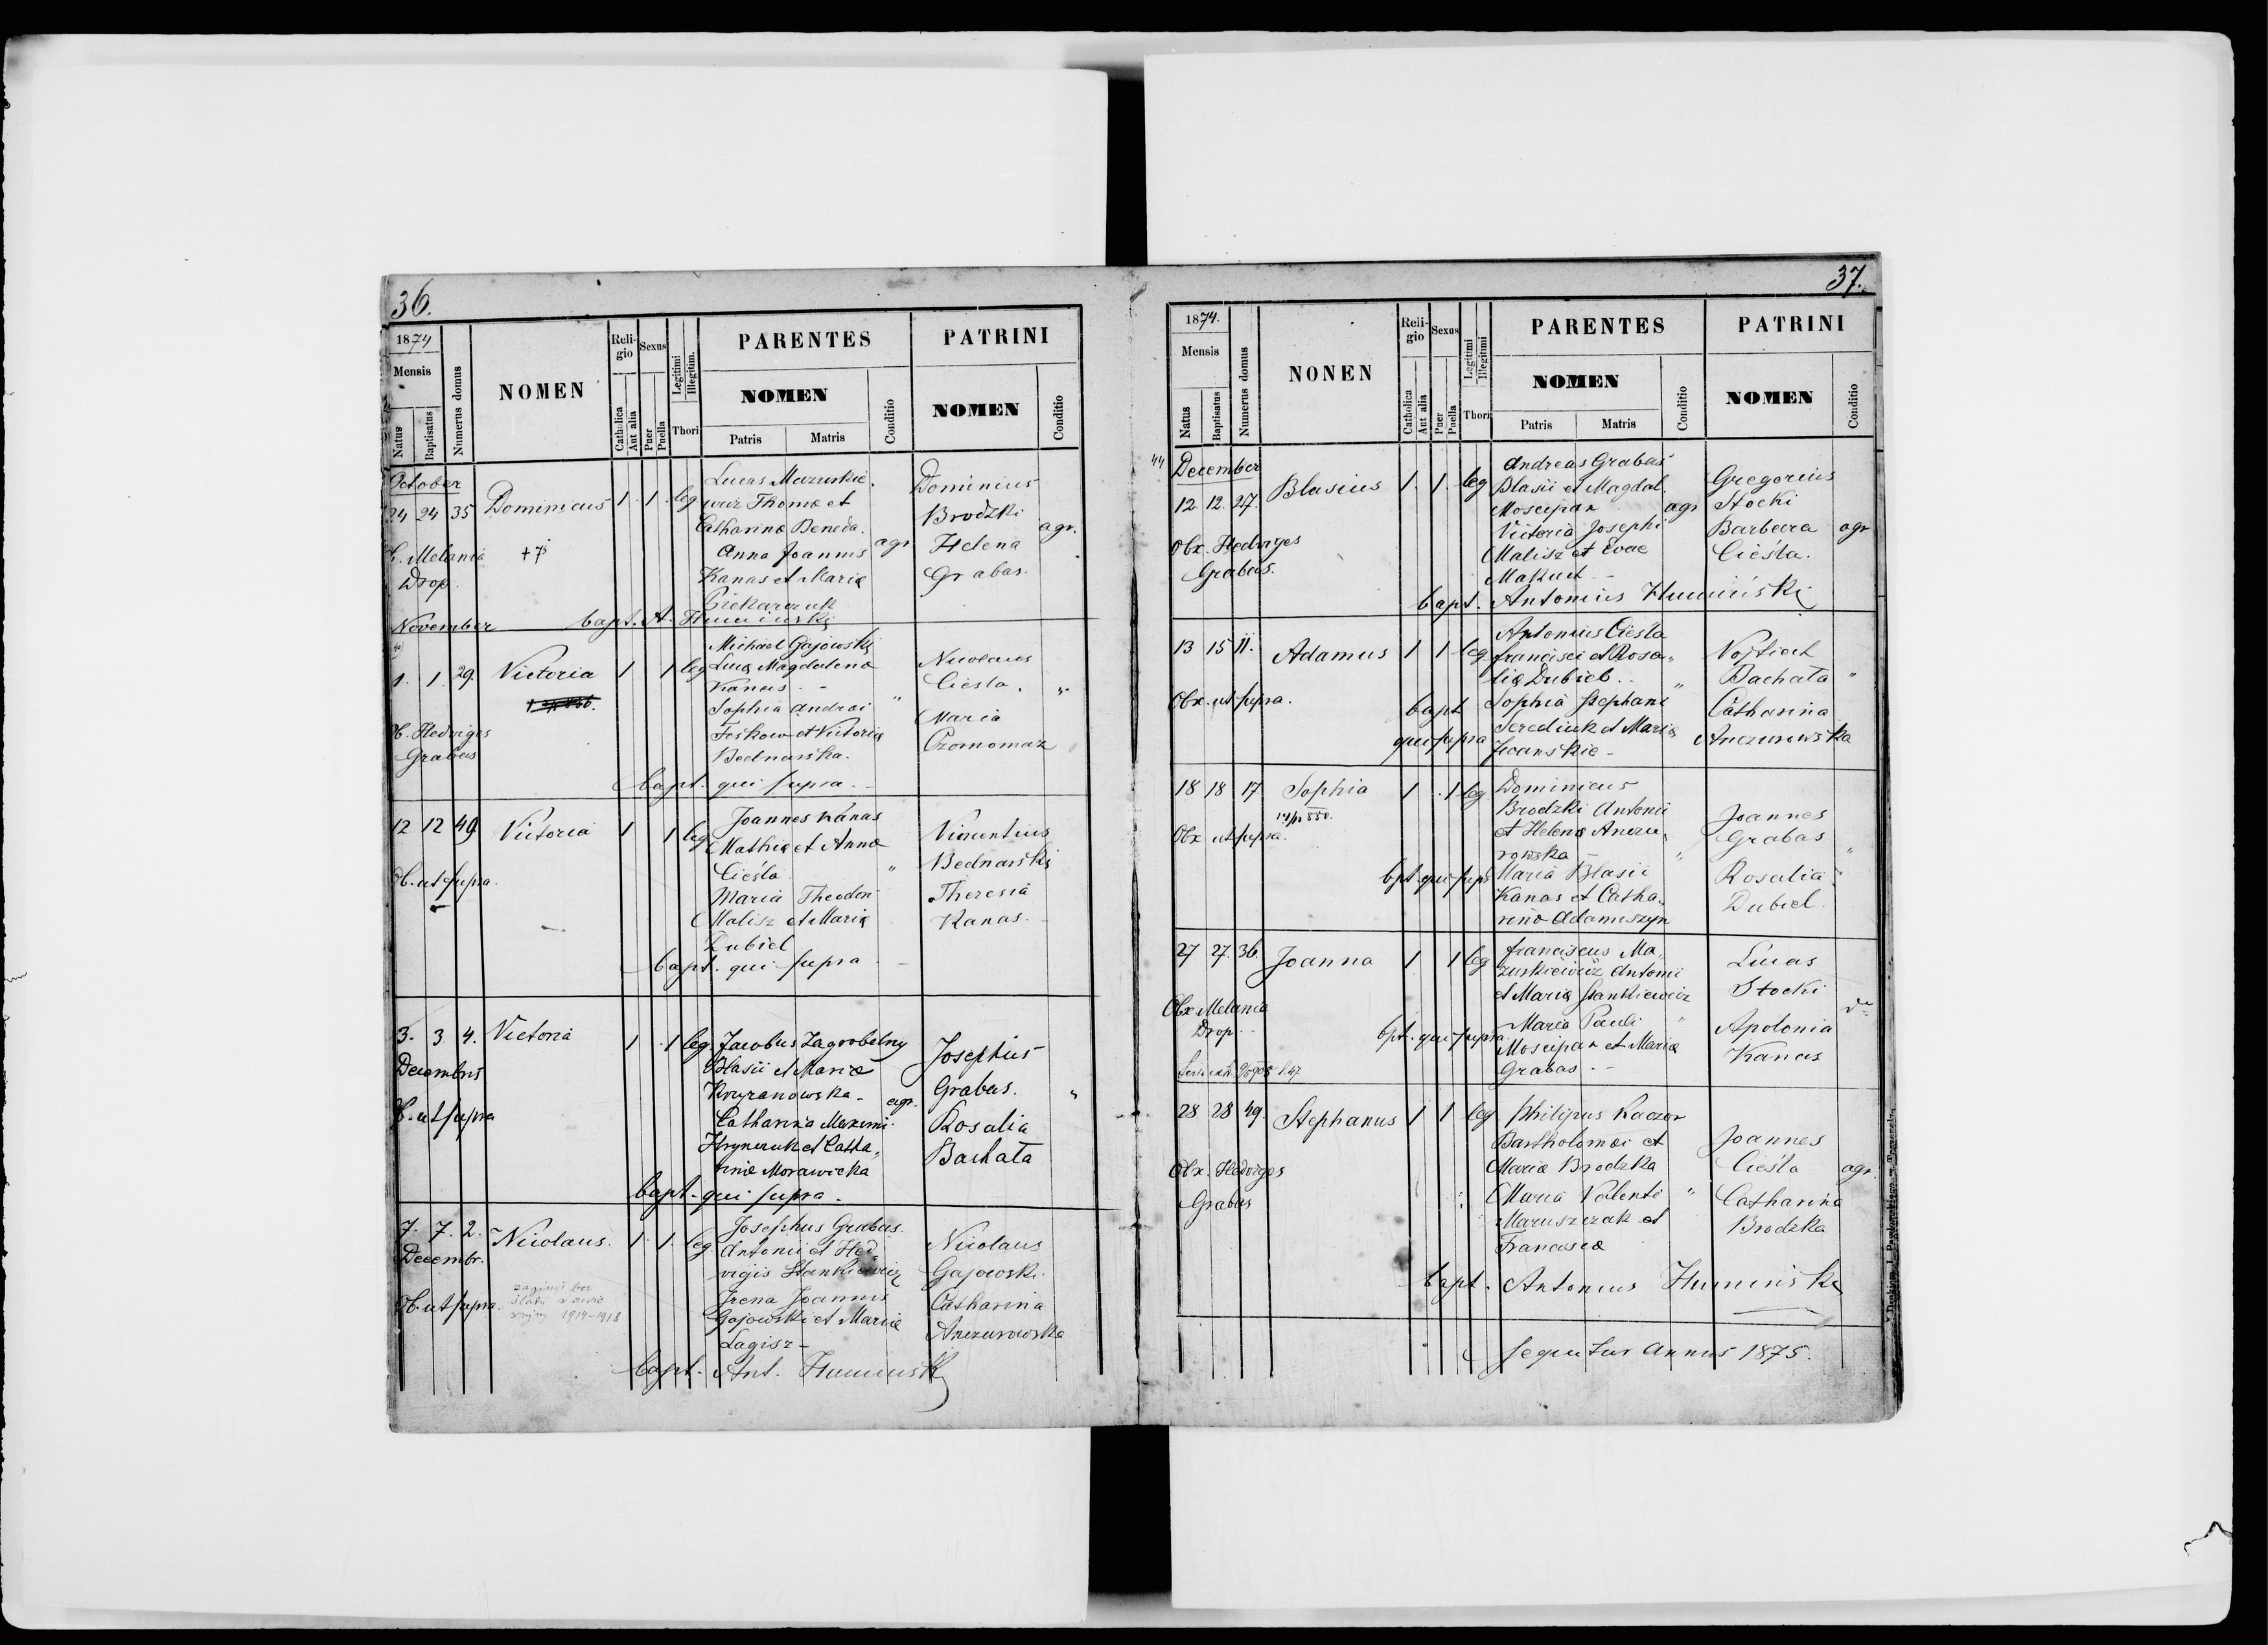 36.
1874
Mensis
Natus
Baptisatus
Numerus domus
NOMEN
Religio
Catholica
Aut alia
Sexus
Puer
Puella
Legitimi
Illegitim.
Thori
PARENTES
NOMEN
Patris
Matris
Conditio
PATRINI
NOMEN
Conditio
October
24 24 35 Dominicus 1 1 leg
Lucas Mazurkie
wicz Thomæ et
Catharinæ Deneda.
Anna Joannis agr
Kanas et Mariæ
Piekarczuk
Dominius
Brodzki
Helena
Grabas.
agr.
O. Melania
Drop.
+
bapt. A. Huminski
November
1. 1 29. Victoria 1 1 leg
Michael Gajowski
Lucæ Magdalena
Kanas -
Sophia Andrei "
Feskow et Victoriæ
Bednarska.
Nicolaus
Cieśla. "
Maria
Czornomaz
O. Hedviges
Grabas
bapt. qui supra -
12 12 49 Victoria 1 1 leg
Joannes Kanas
Mathiæ et Annæ
Cieśla "
Maria Theodori
Malisz et Mariæ
Dubiel
Vincentius
Bednarski
Theresia
Kanas.
Ob. ut supra.
bapt. qui supra
3. 3 4. Victoria 1 1 leg.
Decembris
Jacobus Zagrobelny
Blasii et Mariæ
Kryzanowska - agr.
Catharina Maximi
Hrynczuk et Catha„
rinæ Morawicka
Josephus
Grabas. "
Rosalia
Bachała
O. ut supra
bapt. qui supra.
7. 7. 2. Nicolaus. 1. 1. leg.
Decembr.
Josephus Grabas.
Antonii et Hed„
vigis Stankiewicz
Irena Joannis
Gajowski et Mariæ
Lagisz -
Nicolaus
Gajowski.
Catharina
Anczurowska
Ob. ut supra.
zaginął bez
śladu w czasie
wojny 1914-1918
bapt. Ant. Huminski
37.
1874.
Mensis
Natus
Baptisatus
Numerus domus
NONEN
Religio
Catholica
Aut alia
Sexus
Puer
Puella
Legitimi
Illegitimi
Thori
PARENTES
NOMEN
Patris
Matris
Conditio
PATRINI
NOMEN
Conditio
44 December
12. 12. 27. Blasius 1. 1. leg
Andreas Grabas
Blasii et Magdal.
Moscipan agr
Victoria Josephi
Malisz et Evae
Makuch -
Gregorius
Stocki
Barbara agr
Cieśla.
Obx. Hedviges
Grabas.
bapt. Antonius Humiński
13 15 11. Adamus 1 1 leg
Antonius Cieśla
Francisci et Rosa„
liæ Dubiel.. "
Sophia Stephani
Serediuk et Mariæ
Iwanskie -
Vojtiech
Bachała "
Catharina
Anczurowska
Obx. ut supra.
bapt
qui supra
18 18 17 Sophia 1 1 leg
Dominicus
Brodzki Antonii
et Helenæ Anczu„
rowska - "
Maria Blasii
Kanas et Catha„
rinæ Adamiszyn
Joannes
Grabas
Rosalia "
Dubiel.
Obx ut supra.
bpt. qui supr
27 27. 36. Joanna 1 1 leg
Franciscus Ma„
zurkiewicz Antonii
et Mariæ Stankiewicz
Maria Pauli "
Moscipan et Mariæ
Grabas. -
Lucas
Stocki
Apolonia
Kanas
Obx Melania
Drop -
bpt. qui supra
28 28 49. Stephanus 1 1 leg
Philipus Kaczor
Bartholomæi et
Mariæ Brodzka
Maria Valenti "
Maruszczak et
Franciscæ
Joannes
Cieśla agr.
Catharina
Brodzka
Obx. Hedviges
Grabas
bapt. Antonius Huminski
Sequitur annus 1875.